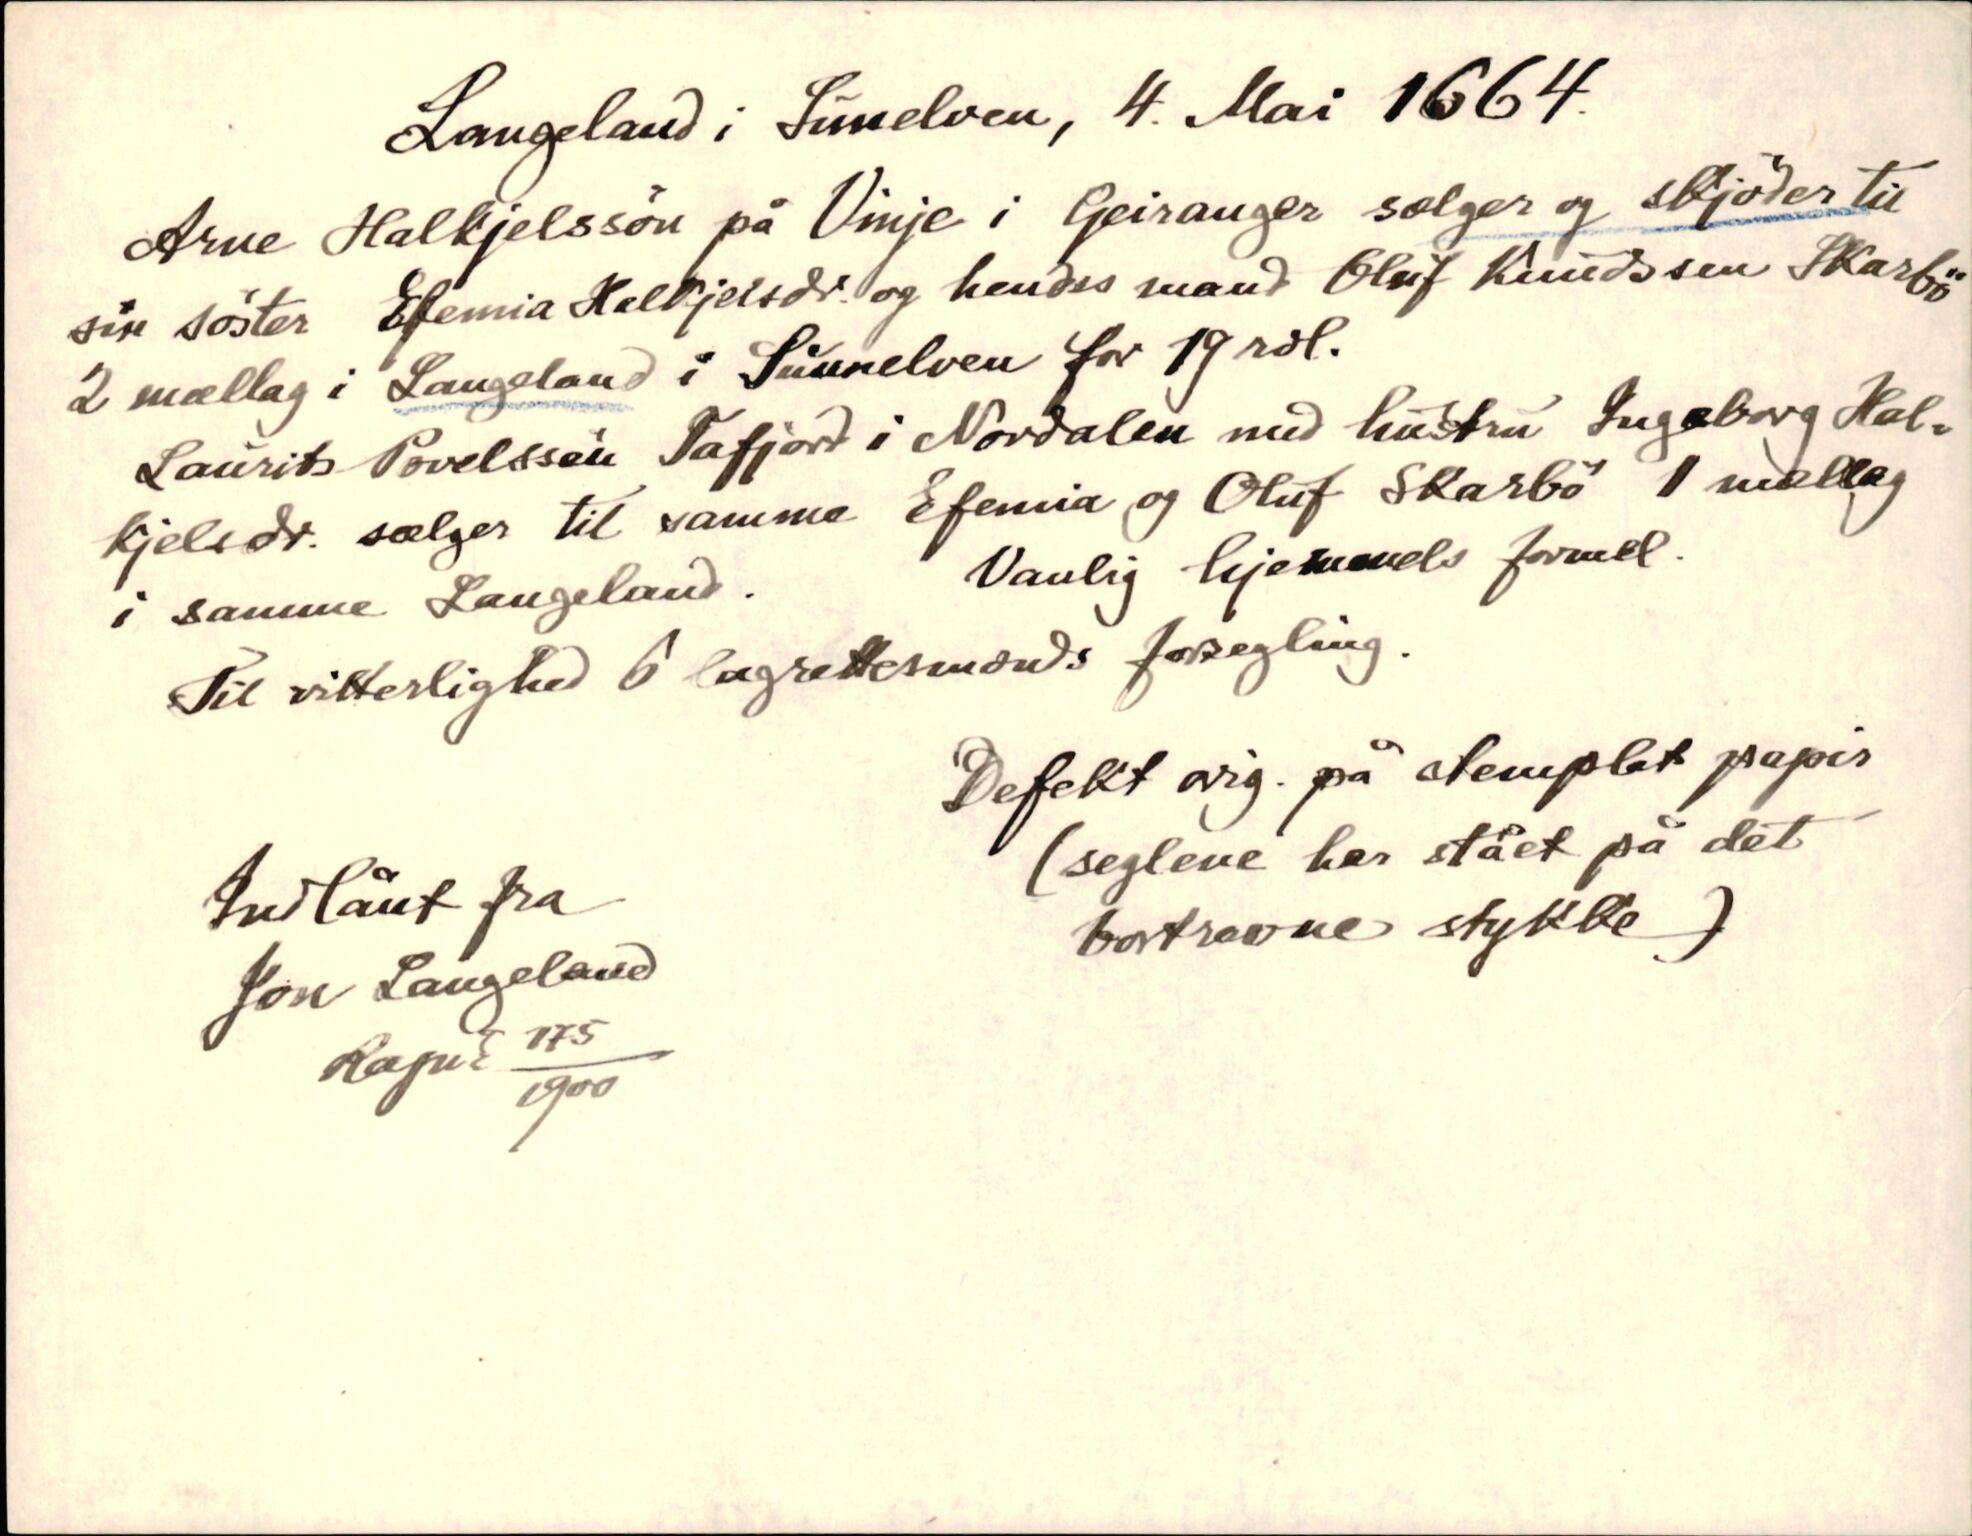 Langeland i Sunelven, 4. Mai 1664.
Arne Halkjelssön på Vinje i Geiranger sælger og skjöder til
sin söster Efemia Halkjelsdr. og hendes mand Oluf Knudssen Skarbö
2 mællag i Langeland i Sunnelven for 19 rdl.
Laurits Povelssön Tafjord i Nordalen med hustru Ingeborg Hal-
kjelsdr. sælger til samme Efemia og Oluf Skarbö 1 mællag
i samme Langeland. Vanlig hjemmels formel.
Til vitterlighed 6 lagrettesmænds forsegling.
Defekt orig. på stemplet papir
(seglene har stået på det
bortrevne stykke)
Indlånt fra
Jon Langeland
175
1900